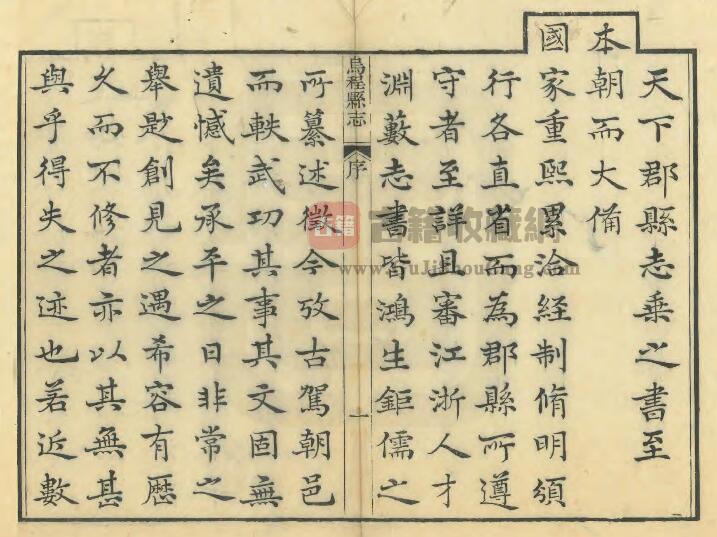 天下郡縣志乘之書至
本朝而大備
國家重熙累洽經制脩明頒
行各直省而為郡縣所遵
守者至詳且審江浙人才
淵藪志書皆鴻生鉅儒之
烏程縣志
序
一
所纂述徵今攷古駕朝邑
而軼武功其事其文固無
遺憾矣承平之日非常之
舉尟創見之遇希容有歷
久而不修者亦以其無甚
與乎得失之迹也若近數
古籍
古籍收藏网
www.GuJiShouCang.com